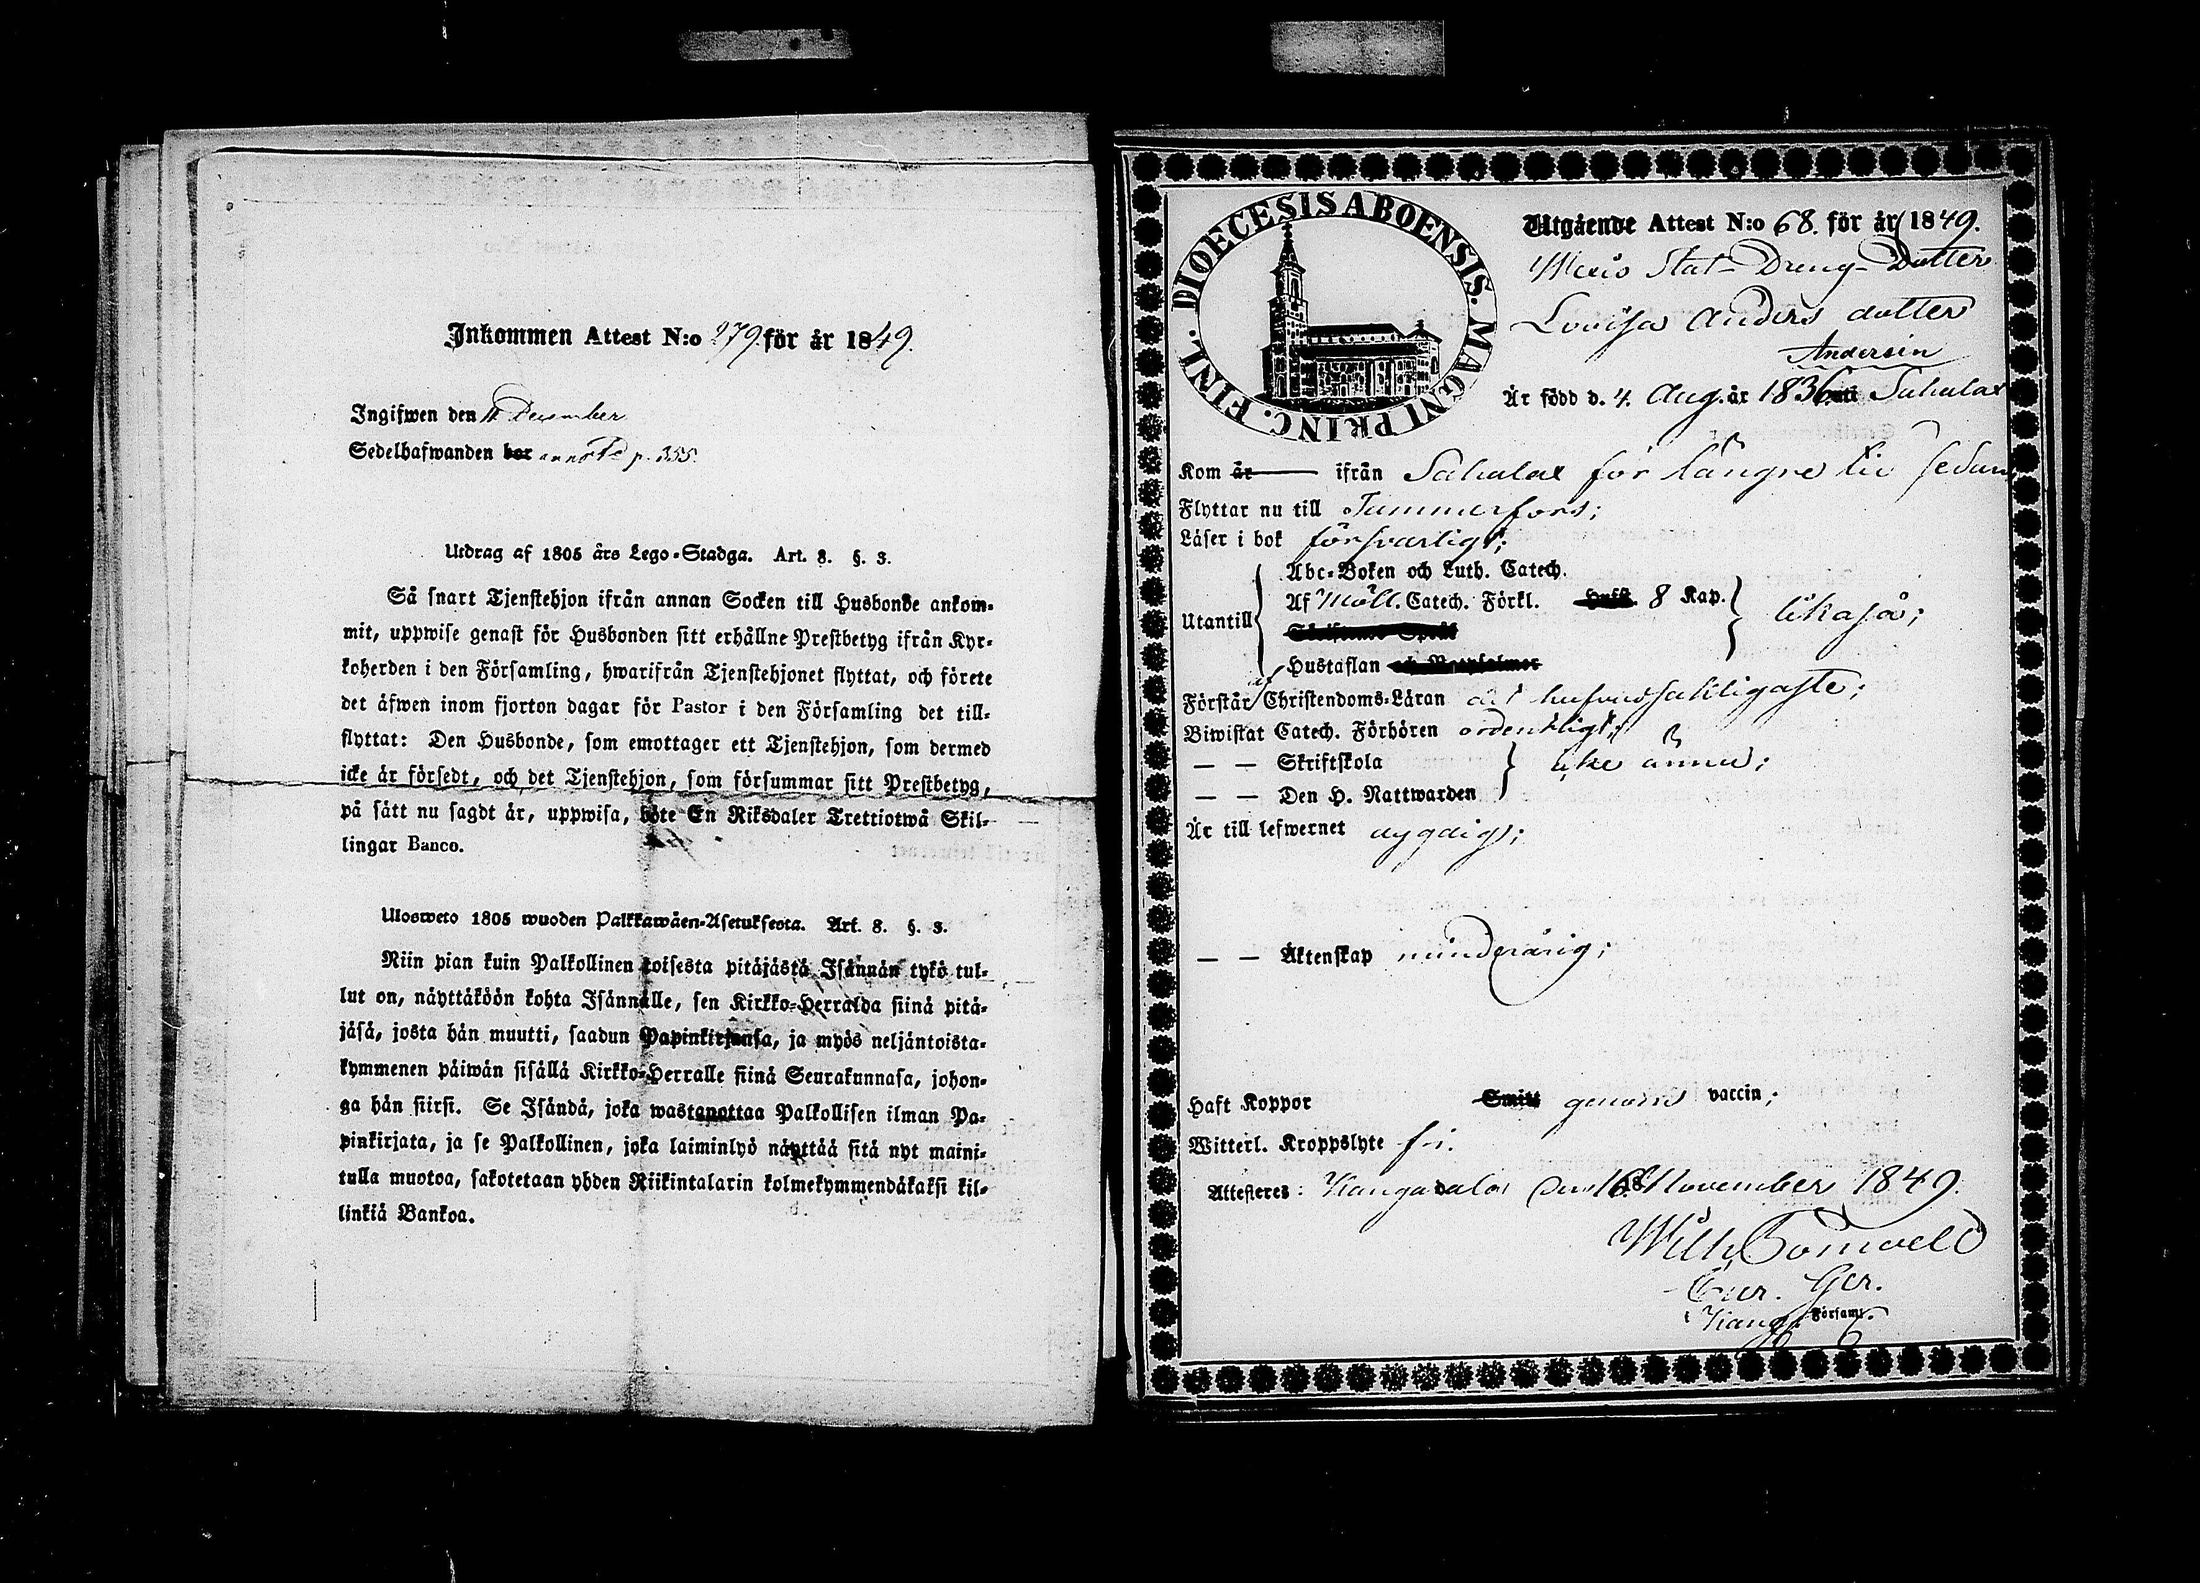 Inkommen Attest N:o 279. för år 1849.
Ingifwen den 11 December
Sedelhafwanden bor annot. p. 355.
Utdrag af 1805 års Lego-Stadga. Art. 8. §. 3.
Så snart Tjenstehjon ifrån annan Socken till Husbonde ankom-
mit, uppwise genast för Husbonden sitt erhållne Prestbetyg ifrån Kyr-
koherden i den Församling, hwarifrån Tjenstehjonet flyttat, och förete
det äfwen inom fjorton dagar för Pastor i den Församling det till-
flyttat: Den Husbonde, som emottager ett Tjenstehjon, som dermed
icke är försedt, och det Tjenstehjon, som försummar sitt Prestbetyg,
på sätt nu sagdt är, uppwisa, böte En Riksdaler Trettiotwå Skil-
lingar Banco.
Ulosweto 1805 wuoden Palkkawäen-Asetuksesta. Art. 8. §. 3.
Niin pian kuin Palkollinen toisesta pitäjästä Isännän tykö tul-
lut on, näyttäköön kohta Isännälle, sen Kirkko-Herralda siinä pitä-
jäsä, josta hän muutti, saadun Papinkirjansa, ja myös neljäntoista-
kymmenen päiwän sisällä Kirkko-Herralle siinä Seurakunnasa, johon-
ga hän siirsi. Se Isändä, joka wastanottaa Palkollisen ilman Pa-
pinkirjata, ja se Palkollinen, joka laiminlyö näyttää sitä nyt maini-
tulla muotoa, sakotetaan yhden Riikintalarin kolmekymmendäkaksi kil-
linkiä Bankoa.
DIOECESIS ABOENSIS. MAGNI PRINC. FINL.
Utgående Attest N:o 68. för år 1849.
Stat-Dreng-Dotter
Lovisa Anders dotter
Andersin
Är född d. 4. Aug. år 1836 uti Sahalax
Kom år ifrån Sahalax för längre tid sedan
Flyttar nu till Tammerfors;
Läser i bok försvarligt;
Abc-Boken och Luth. Catech.
Utantill Af Möll. Catech. Förkl. Hufst. 8 Kap. likaså;
Hustaflan
Förstår af Christendoms-Läran det hufvudsakligaste;
Biwistat Catech. Förhören ordentligt;
— — Skriftskola icke ännu;
— — Den H. Nattwarden
Är till lefwernet dygdig;
— — Äktenskap minderårig;
Haft Koppor Smitt genom vaccin;
Witterl. Kroppslyte fri.
Attesteres: Kangasala den 16 November 1849.
Wilh.
Församl.